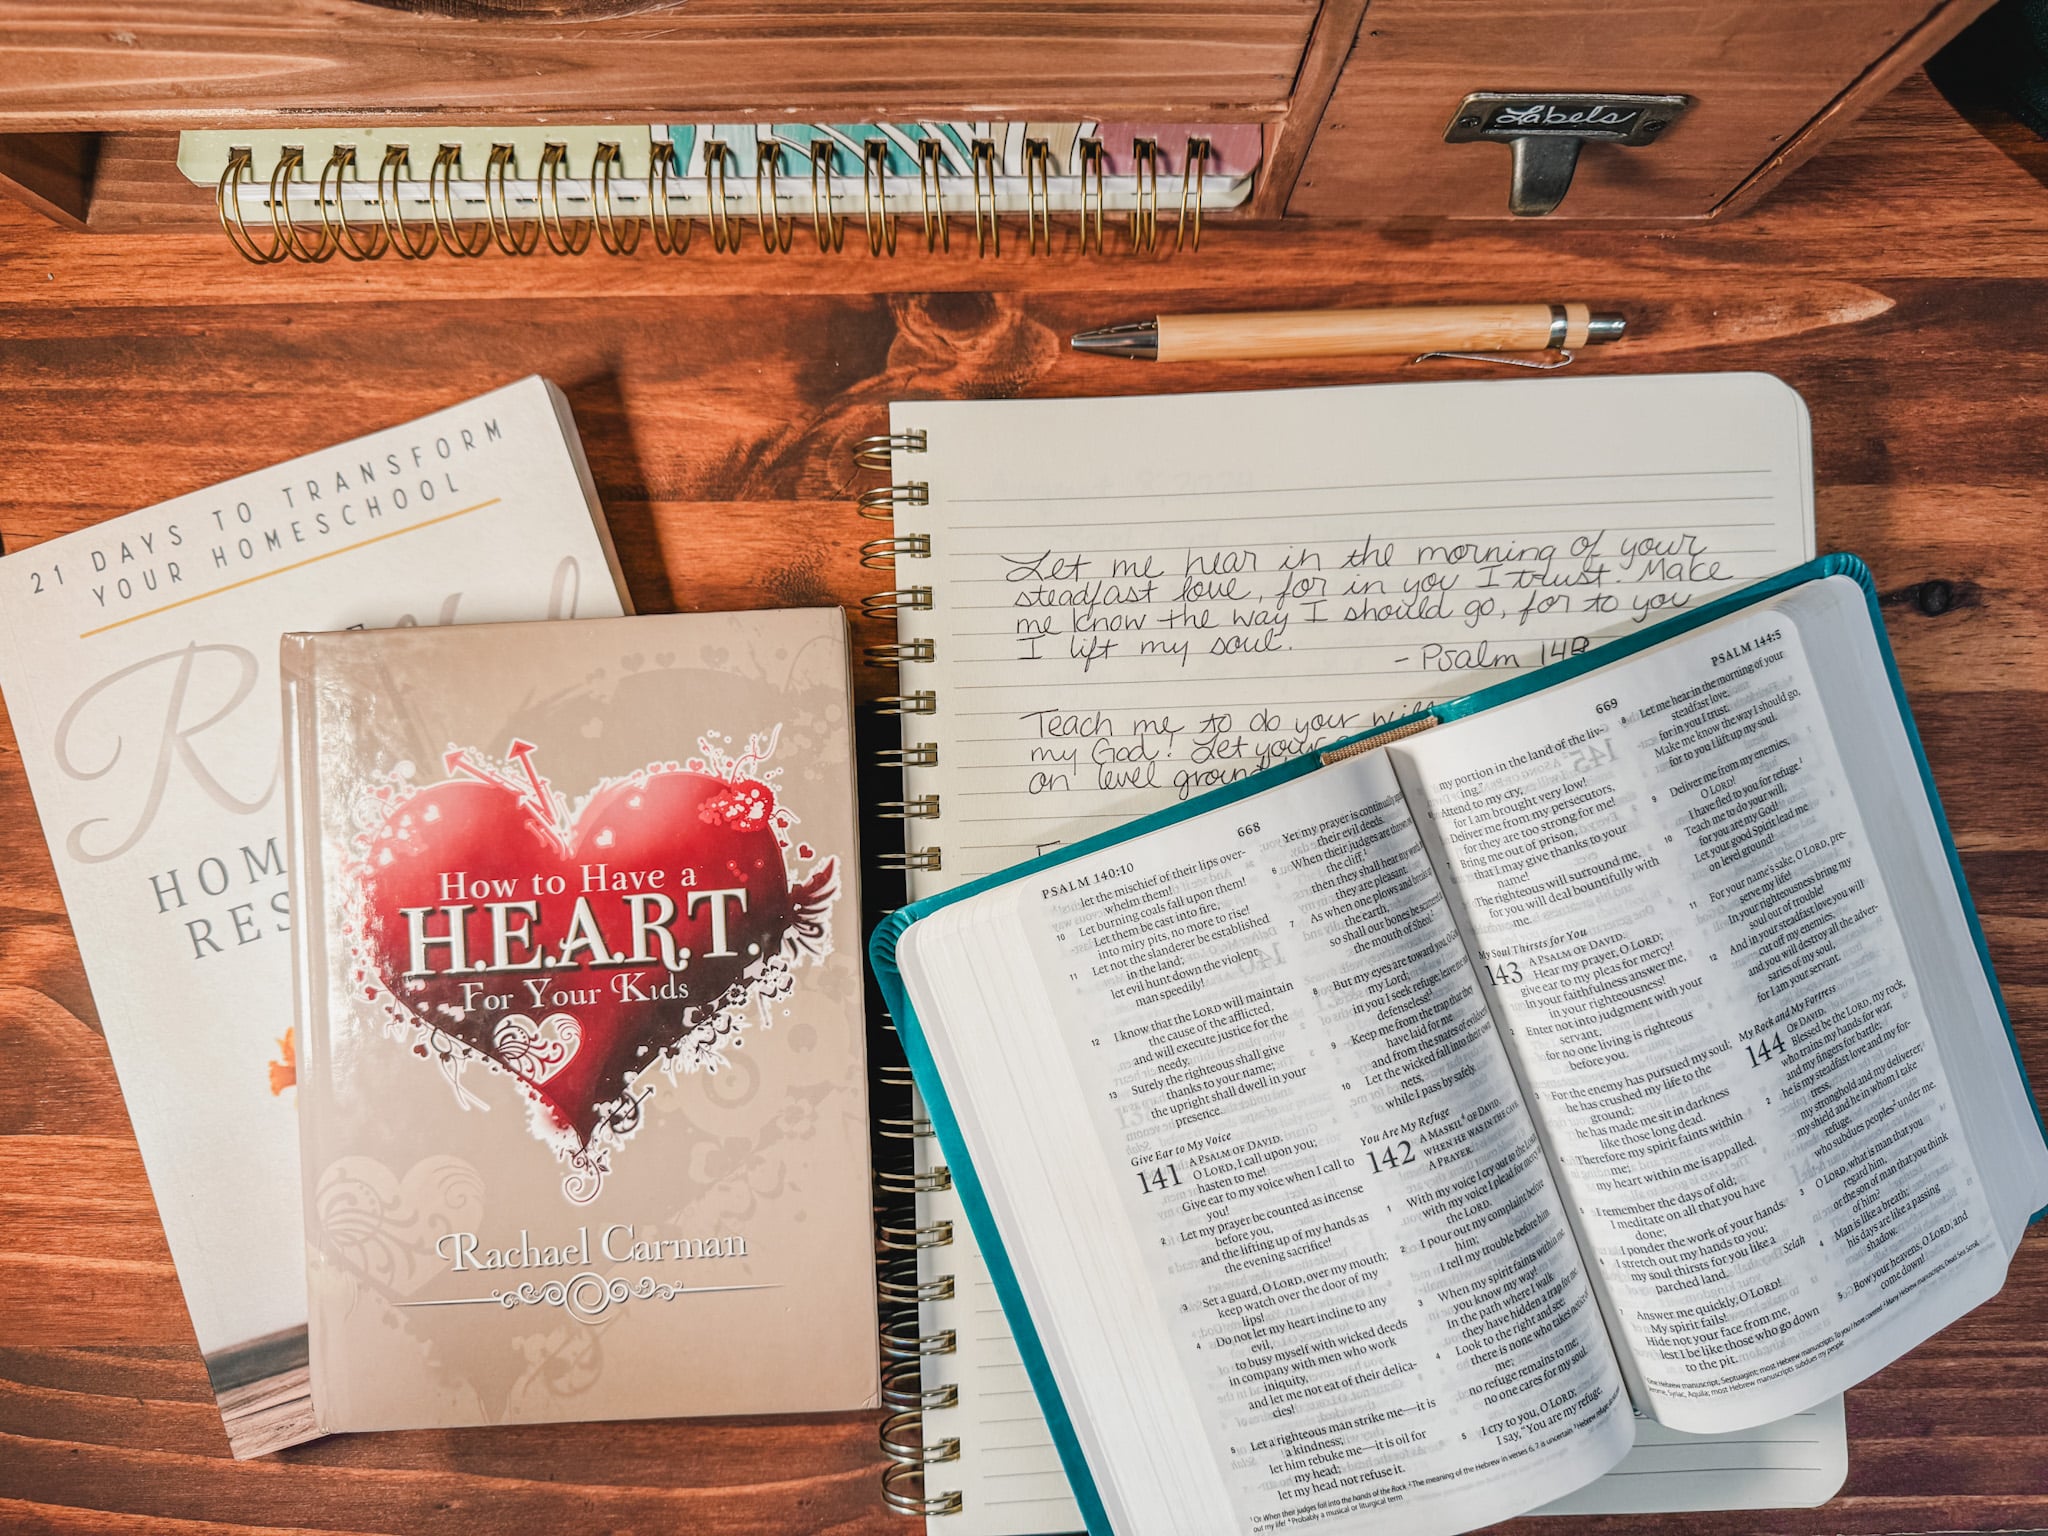 Labels
21 DAYS TO TRANSFORM
YOUR HOMESCHOOL
HOM
RES
How to Have a
H.E.A.R.T.
For Your Kids
Rachael Carman
Let me hear in the morning of your
steadfast love, for in you I trust. Make
me know the way I should go, for to you
I lift my soul.
- Psalm 143
Teach me to do your will
my God! Let your
on level ground
PSALM 140:10
668
let the mischief of their lips over-
whelm them!
10 Let burning coals fall upon them!
Let them be cast into fire,
into miry pits, no more to rise!
11 Let not the slanderer be established
in the land;
let evil hunt down the violent
man speedily!
12 I know that the LORD will maintain
the cause of the afflicted,
and will execute justice for the
needy.
13 Surely the righteous shall give
thanks to your name;
the upright shall dwell in your
presence.
Give Ear to My Voice
141 A PSALM OF DAVID.
O LORD, I call upon you;
hasten to me!
Give ear to my voice when I call to
you!
2 Let my prayer be counted as incense
before you,
and the lifting up of my hands as
the evening sacrifice!
3 Set a guard, O LORD, over my mouth;
keep watch over the door of my
lips!
4 Do not let my heart incline to any
evil,
to busy myself with wicked deeds
in company with men who work
iniquity,
and let me not eat of their delica-
cies!
5 Let a righteous man strike me—it is
a kindness;
let him rebuke me—it is oil for
my head;
let my head not refuse it.
Yet my prayer is continually
their evil deeds.
6 When their judges are
the cliff,
then they shall hear my
they are pleasant.
7 As when one plows and breaks
the earth,
so shall our bones be scattered
the mouth of Sheol.
8 But my eyes are toward you, O
my Lord;
in you I seek refuge; leave me not
defenseless!
9 Keep me from the trap that they
have laid for me
and from the snares of evildoers
10 Let the wicked fall into their own
nets,
while I pass by safely.
You Are My Refuge
142 A MASKIL OF DAVID,
WHEN HE WAS IN THE CAVE.
A PRAYER.
1 With my voice I cry out to the LORD;
with my voice I plead for mercy
the LORD.
2 I pour out my complaint before
him;
I tell my trouble before him.
3 When my spirit faints within me,
you know my way!
In the path where I walk
they have hidden a trap for me.
4 Look to the right and see:
there is none who takes notice
me;
no refuge remains to me;
no one cares for my soul.
5 I cry to you, O LORD;
I say, "You are my refuge,
1 Or When their judges fall into the hands of the Rock 2 The meaning of the Hebrew in verses 6, 7 is uncertain
out my life! 4 Probably a musical or liturgical term
669
PSALM 144:5
my portion in the land of the liv-
ing."
Attend to my cry,
for I am brought very low!
Deliver me from my persecutors,
for they are too strong for me!
Bring me out of prison,
that I may give thanks to your
name!
The righteous will surround me,
for you will deal bountifully with
me.
My Soul Thirsts for You
143 A PSALM OF DAVID.
Hear my prayer, O LORD;
give ear to my pleas for mercy!
In your faithfulness answer me,
in your righteousness!
2 Enter not into judgment with your
servant,
for no one living is righteous
before you.
3 For the enemy has pursued my soul;
he has crushed my life to the
ground;
he has made me sit in darkness
like those long dead.
4 Therefore my spirit faints within
me;
my heart within me is appalled.
5 I remember the days of old;
I meditate on all that you have
done;
I ponder the work of your hands.
6 I stretch out my hands to you;
my soul thirsts for you like a
parched land. Selah
7 Answer me quickly, O LORD!
My spirit fails!
Hide not your face from me,
lest I be like those who go down
to the pit.
8 Let me hear in the morning of your
steadfast love,
for in you I trust.
Make me know the way I should go,
for to you I lift up my soul.
9 Deliver me from my enemies,
O LORD!
I have fled to you for refuge.
10 Teach me to do your will,
for you are my God!
Let your good Spirit lead me
on level ground!
11 For your name's sake, O LORD, pre-
serve my life!
In your righteousness bring my
soul out of trouble!
12 And in your steadfast love you will
cut off my enemies,
and you will destroy all the adver-
saries of my soul,
for I am your servant.
My Rock and My Fortress
144 OF DAVID.
Blessed be the LORD, my rock,
who trains my hands for war,
and my fingers for battle;
2 he is my steadfast love and my for-
tress,
my stronghold and my deliverer,
my shield and he in whom I take
refuge,
who subdues peoples under me.
3 O LORD, what is man that you
regard him,
or the son of man that you think
of him?
4 Man is like a breath;
his days are like a passing
shadow.
5 Bow your heavens, O LORD, and
come down!
Hebrew manuscript, Septuagint; most Hebrew manuscripts To you I have covered
Syriac, Aquila; most Hebrew manuscripts subdues my people